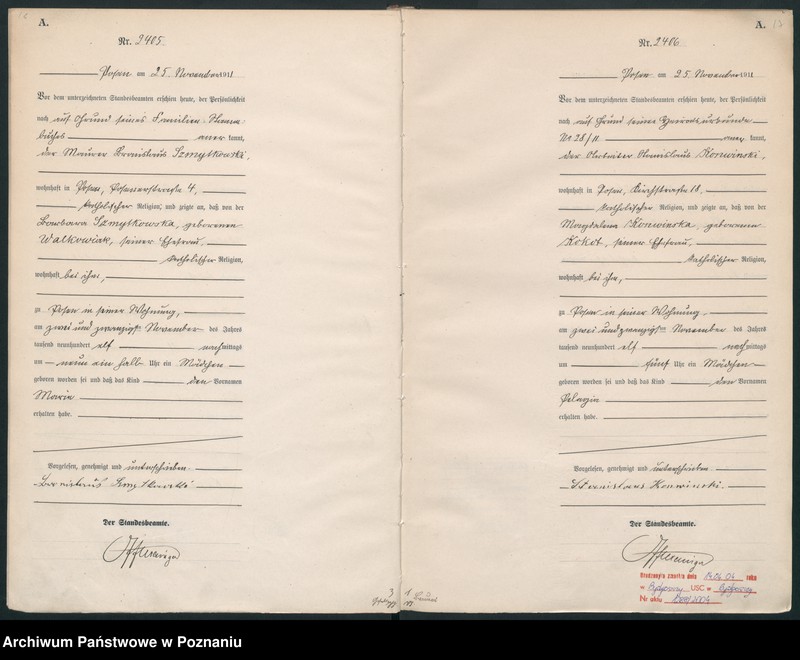 A.
Nr. 2405.
Posen am 25. November 1911
Vor dem unterzeichneten Standesbeamten erschien heute, der Persönlichkeit
nach auf Grund seines Familien-Stamm-
buches anerkannt,
der Maurer Bronislaus Szmytkowski,
wohnhaft in Posen, Posenerstraße 4,
katholischer Religion, und zeigte an, daß von der
Barbara Szmytkowska, geborenen
Walkowiak, seiner Ehefrau,
katholischer Religion,
wohnhaft bei ihm,
zu Posen in seiner Wohnung,
am zwei und zwanzigsten November des Jahres
tausend neunhundert elf nachmittags
um neun ein halb Uhr ein Mädchen
geboren worden sei und daß das Kind den Vornamen
Maria
erhalten habe.
Vorgelesen, genehmigt und unterschrieben.
Bronislaus Szmytkowski
Der Standesbeamte.
A.
Nr. 2406
Posen am 25. November 1911
Vor dem unterzeichneten Standesbeamten erschien heute, der Persönlichkeit
nach auf Grund seiner Heiratsurkunde
Nr 28/11 anerkannt,
der Arbeiter Stanislaus Konwinski,
wohnhaft in Posen, 18,
katholischer Religion, und zeigte an, daß von der
Magdalena Konwinska, geborenen
Kokot, seiner Ehefrau,
katholischer Religion,
wohnhaft bei ihm,
zu Posen in seiner Wohnung,
am zwei und zwanzigsten November des Jahres
tausend neunhundert elf nachmittags
um fünf Uhr ein Mädchen
geboren worden sei und daß das Kind den Vornamen
Pelagia
erhalten habe.
Vorgelesen, genehmigt und unterschrieben.
Stanislaus Konwinski.
Der Standesbeamte.
roku
w Bydgoszczy USC w Bydgoszczy
Nr aktu
Archiwum Państwowe w Poznaniu